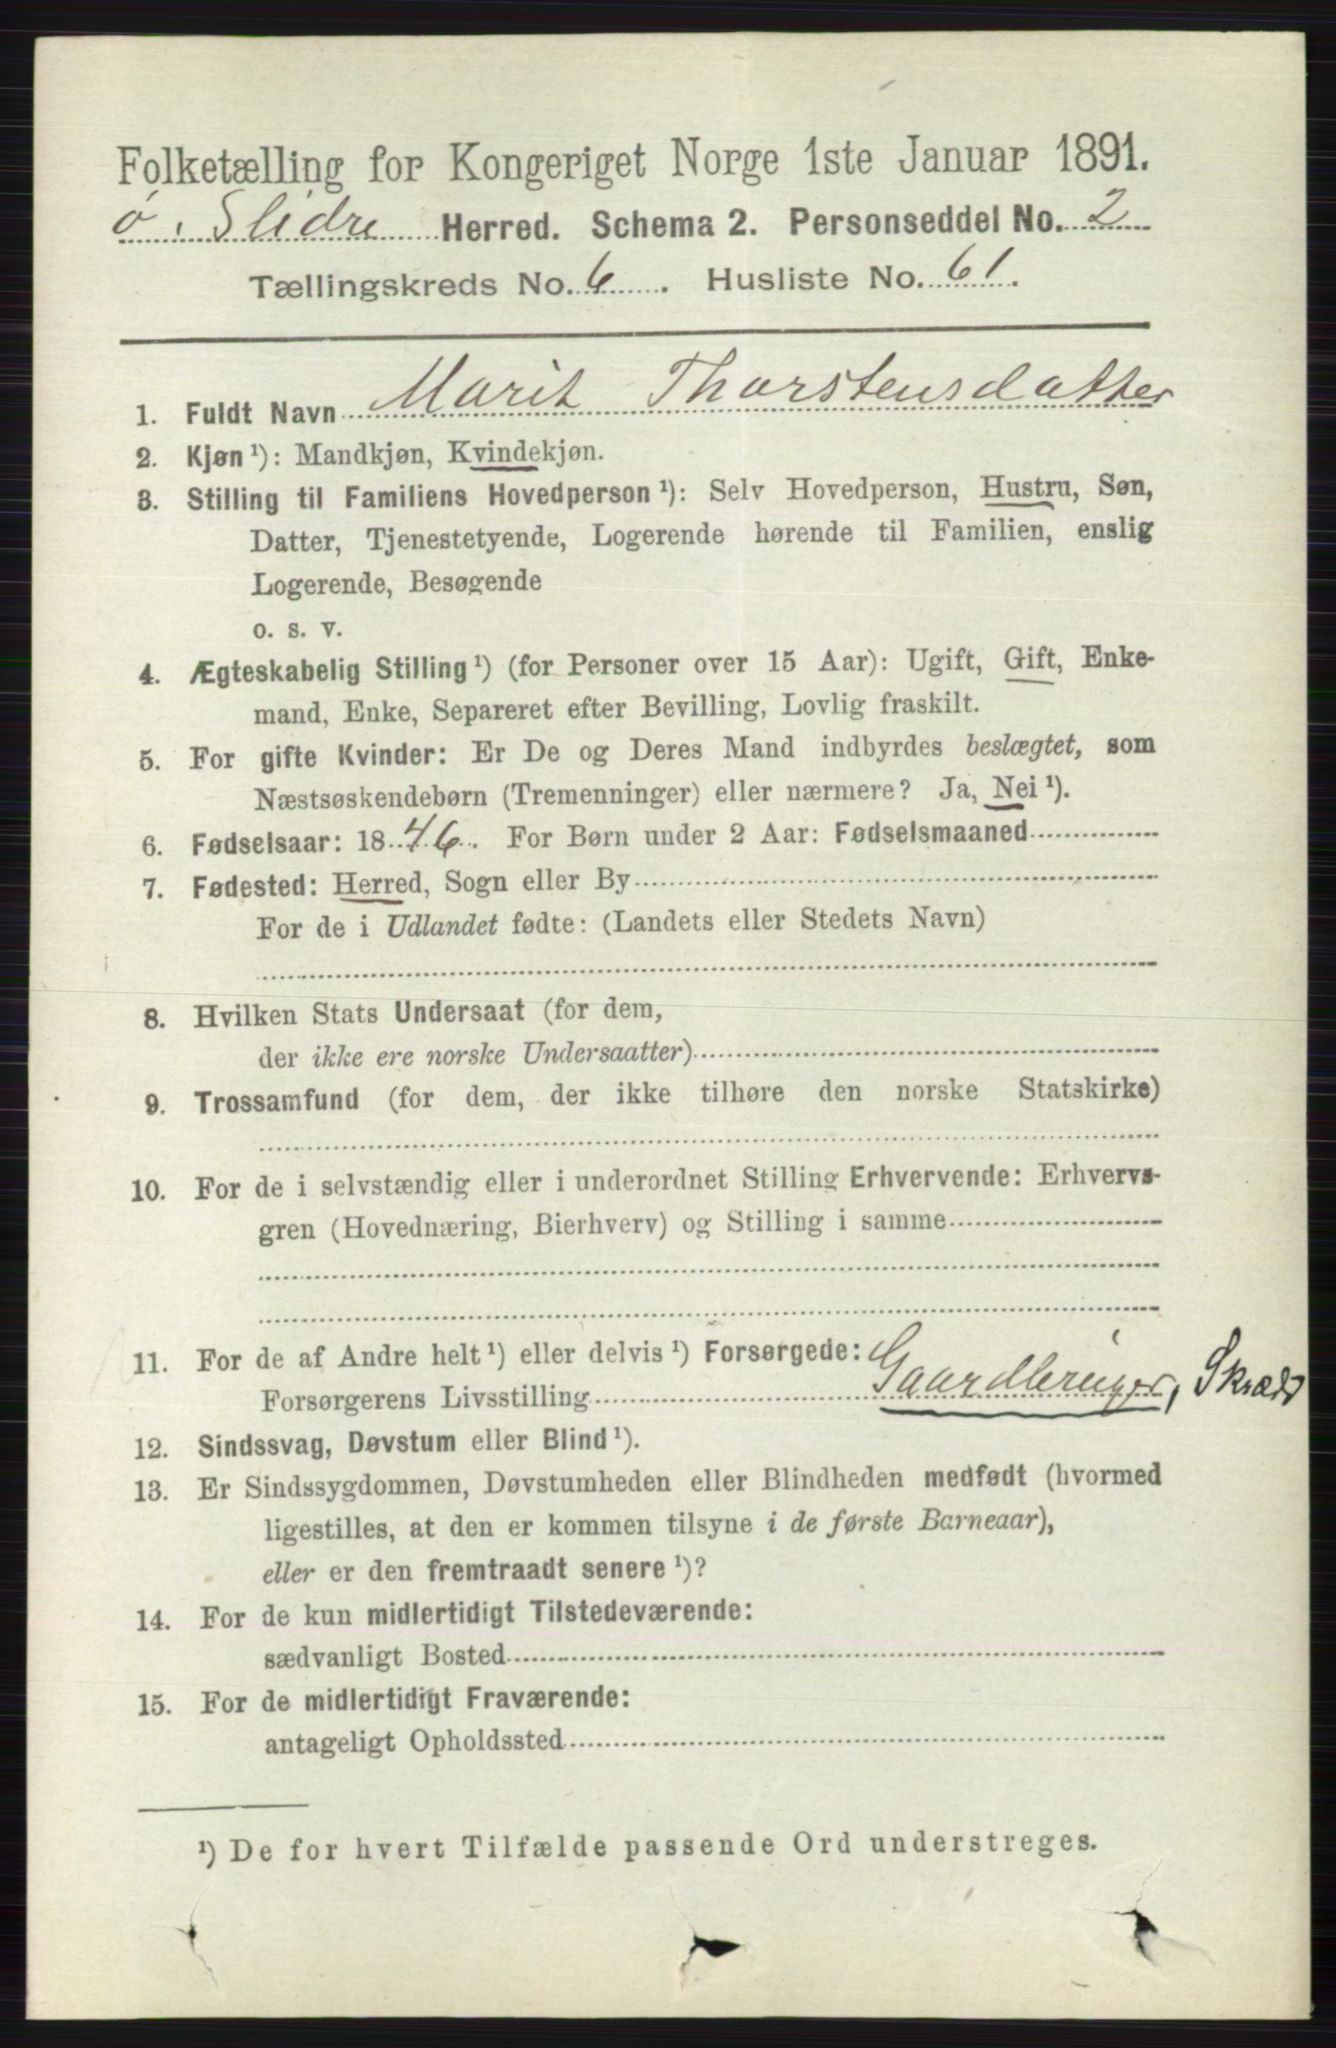 Folketælling for Kongeriget Norge 1ste Januar 1891.
Ø. Slidre Herred. Schema 2. Personseddel No. 2
Tællingskreds No. 6. Husliste No. 61.
1. Fuldt Navn Marit Thorstensdatter
2. Kjøn ¹): Mandkjøn, Kvindekjøn.
3. Stilling til Familiens Hovedperson ¹): Selv Hovedperson, Hustru, Søn,
Datter, Tjenestetyende, Logerende hørende til Familien, enslig
Logerende, Besøgende
o. s. v.
4. Ægteskabelig Stilling ¹) (for Personer over 15 Aar): Ugift, Gift, Enke-
mand, Enke, Separeret efter Bevilling, Lovlig fraskilt.
5. For gifte Kvinder: Er De og Deres Mand indbyrdes beslægtet, som
Næstsøskendebørn (Tremenninger) eller nærmere? Ja, Nei ¹).
6. Fødselsaar: 1846. For Børn under 2 Aar: Fødselsmaaned
7. Fødested: Herred, Sogn eller By
For de i Udlandet fødte: (Landets eller Stedets Navn)
8. Hvilken Stats Undersaat (for dem,
der ikke ere norske Undersaatter)
9. Trossamfund (for dem, der ikke tilhøre den norske Statskirke)
10. For de i selvstændig eller i underordnet Stilling Erhvervende: Erhvervs-
gren (Hovednæring, Bierhverv) og Stilling i samme
11. For de af Andre helt ¹) eller delvis ¹) Forsørgede:
Forsørgerens Livsstilling Gaardbruger, Skræd
12. Sindssvag, Døvstum eller Blind ¹).
13. Er Sindssygdommen, Døvstumheden eller Blindheden medfødt (hvormed
ligestilles, at den er kommen tilsyne i de første Barneaar),
eller er den fremtraadt senere ¹)?
14. For de kun midlertidigt Tilstedeværende:
sædvanligt Bosted
15. For de midlertidigt Fraværende:
antageligt Opholdssted
¹) De for hvert Tilfælde passende Ord understreges.